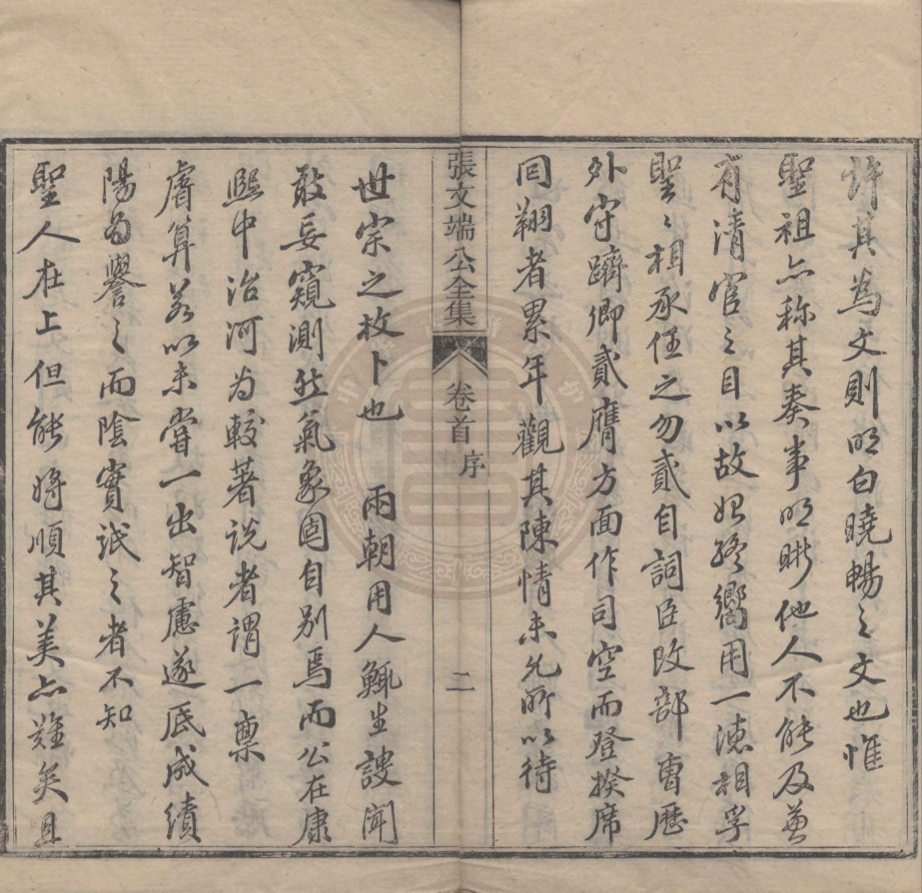 許其為文則明白曉暢之文也惟
聖祖亦称其奏事明晰他人不能及并
有清官之目以故始終嚮用一德相孚
聖之相承任之勿貳自詞臣改部曹歷
外守躋卿貳膺方面作司空而登揆席
回翔者累年觀其陳情未允所以待
張文端公全集
卷首 序
二
世宗之枚卜也 兩朝用人鯫生謏聞
敢妄窺測然氣象固自别焉而公在康
熙中治河为較著説者謂一稟
睿算若以未嘗一出智慮遂底成績
陽為譽之而陰實詆之者不知
聖人在上但能將順其美亦難矣且